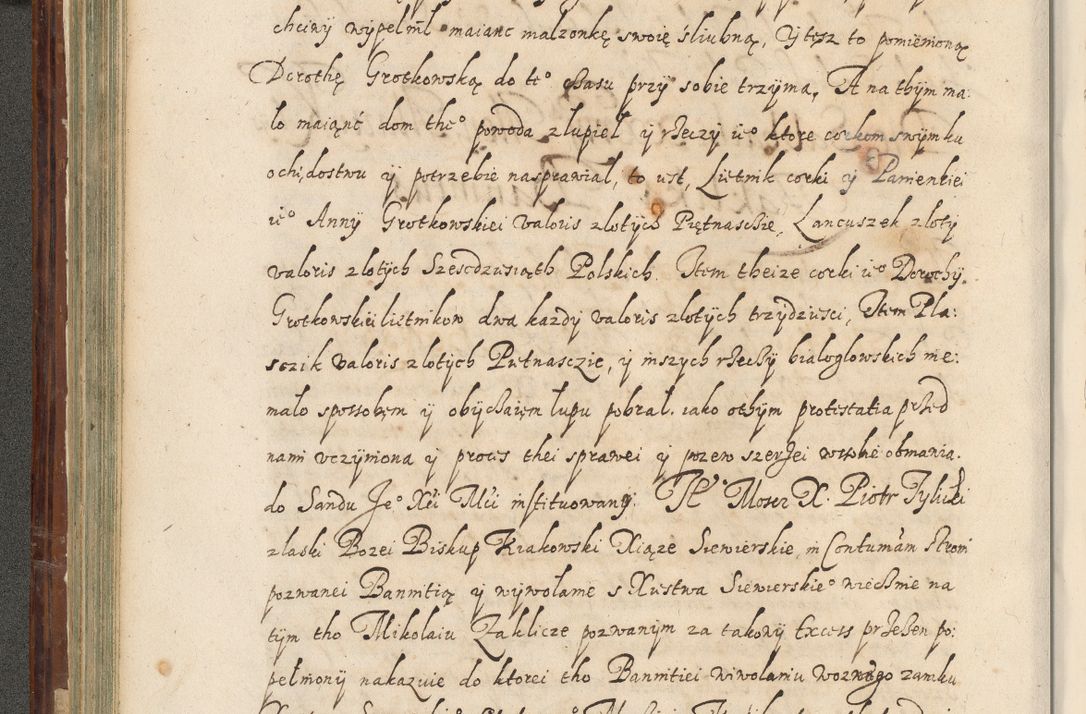 chciwy wypełnił maianc malzonkę swoię sliubną, Iy tesz to pomienioną
Dorothę Grotkowską do te° czasu przy sobie trzyma, A na thym ma:
lo maiąnc dom the° powoda złupieł y rzeczy ie° ktore corkom swym ku
ochędostwu y potrzebie nasprawiał, to iest, Lietnik corki y Panienkiei
ie° Anny Grotkowskiei valoris zlotych Piętnasczie, Lancuszek zloty
valoris zlotych Szescdziesiąth Polskich. Item theize corki ie° Dorothy
Grotkowskiei lietnikow dwa kazdy valoris zlotych trzydziesci, Item Pla:
sczik valoris zlotych Pietnasczie, y inszych rzeczy bialoglowskich nie:
mało sposobem y obyczaiem łupu pobrał, iako othym protestatia przed
nami vczyniona y proces thei sprawei y pozew szerzei w sobie obmawia
do Sandu Je° Xci Mci instituowany. My Mosez X. Piotr Tylicki
z laski Bozei Biskup Krakowski Xiąze Siewierskie, in Contumam strony
pozwanei Bannitią y wywolanie s Xiestwa Siewierskie° wiecznie na
tym tho Mikolaiu Zaklicze pozwanym za takowy Excess przezen po:
pełniony nakazuie do ktorei tho Bannitiei wywolaniu woznego zamku